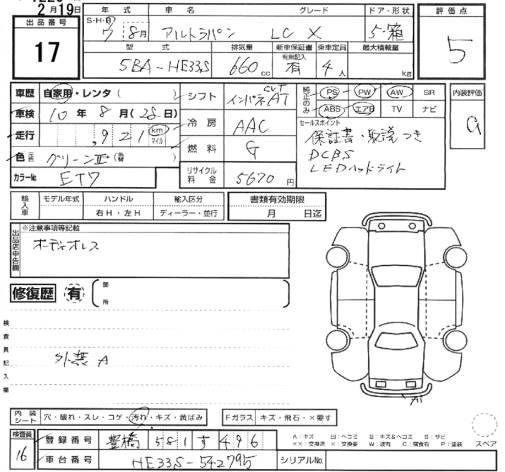 2月19日
出品番号
17
年式
車名
グレード
ドア・形状
S・H・R
8月
アルトラパン
LC X
5・箱
型式
排気量
新車保証書
乗車定員
最大積載量
5BA-HE33S
660 cc
有無記入
有
4人
kg
評価点
5
車歴
自家用・レンタ
シフト
インパネAT
CVT
純正のみ
PS
PW
AW
SR
ABS
エアB
TV
ナビ
内装評価
車検
10年8月(28日)
冷房
AAC
セールスポイント
保証書・取説つき
DCBS
LEDヘッドライト
走行
,921
km
マイル
燃料
G
色
グリーンⅡ
カラーNo
リサイクル料金
5670円
輸入車
モデル年式
ハンドル
右H・左H
輸入区分
ディーラー・並行
書類有効期限
月
日迄
出品店申告欄
※注意事項等記載
オーディオレス
修復歴
有
箇所
検査員記入欄
外装 A
A1
内装シート
穴・破れ・スレ・コゲ・汚れ・キズ・黄ばみ
Fガラス
キズ・飛石・×要す
スペア
検査員
16
登録番号
豊橋
581
す
496
車台番号
HE33S-542795
シリアルNo.